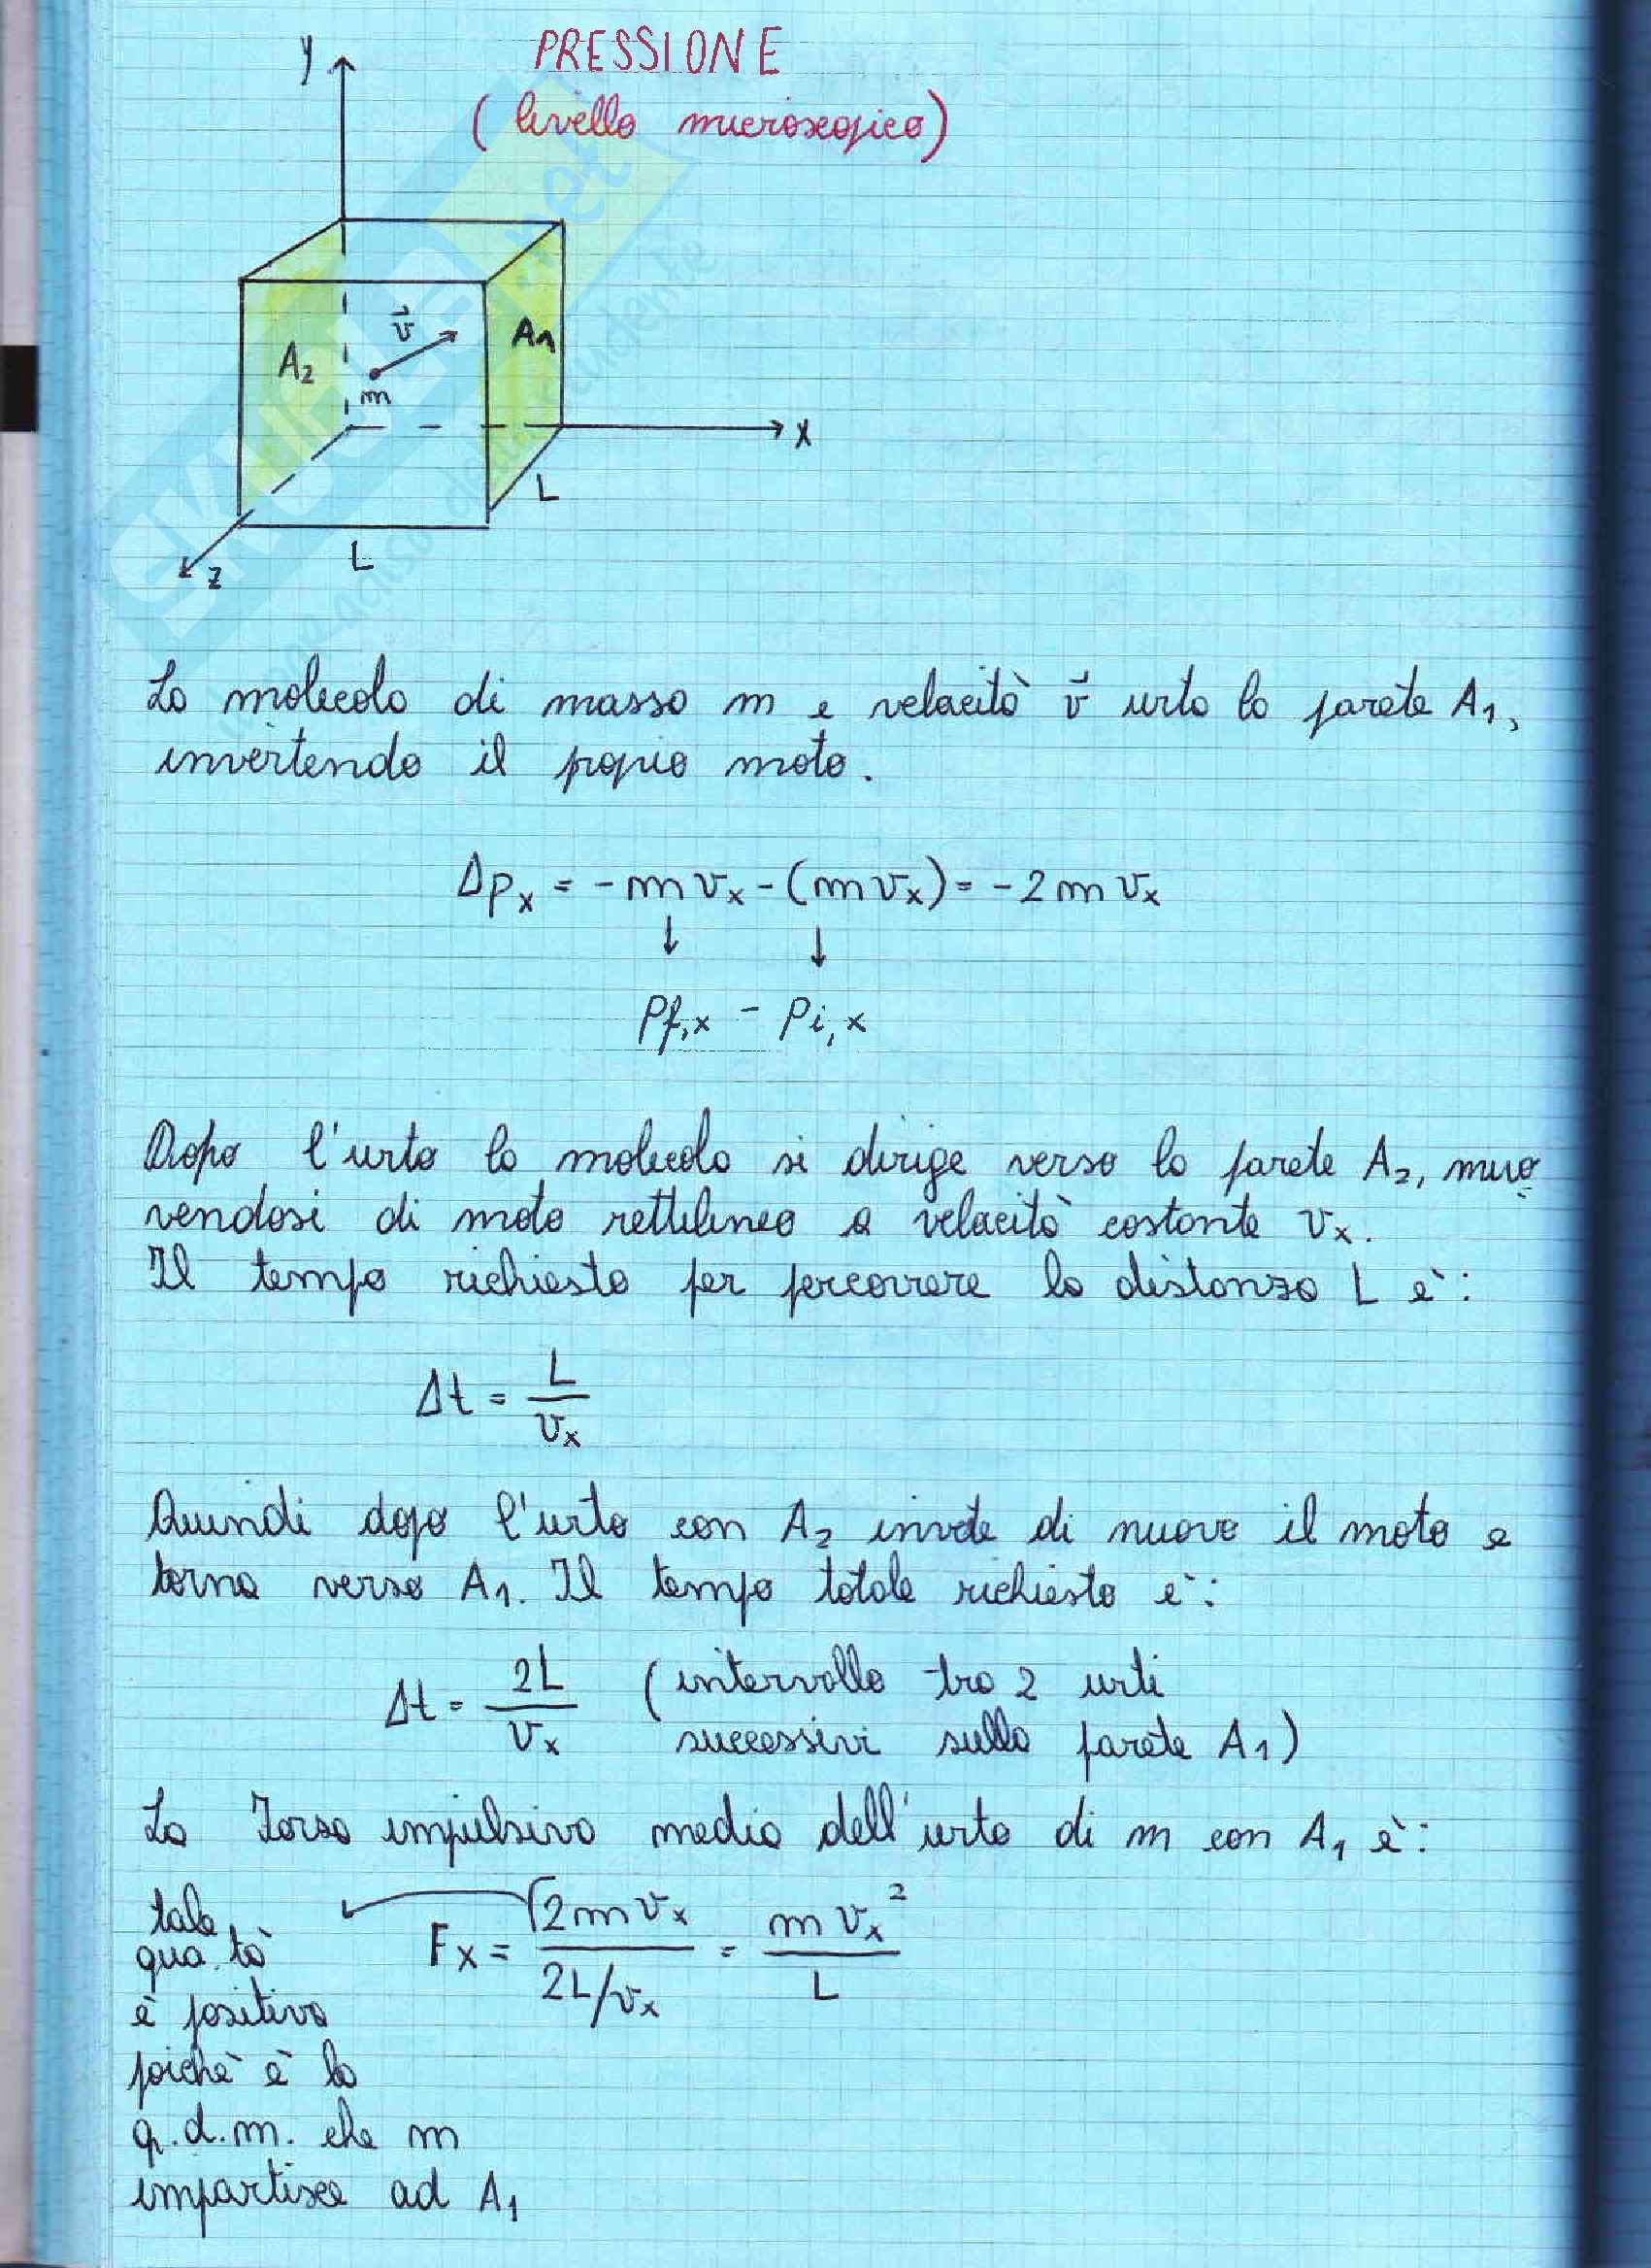 PRESSIONE
(livello microscopico)
y
A2
v⃗
m
A1
x
L
L
z
SKUOLA.net
La molecola di massa m e velocità v⃗ urta la parete A1,
invertendo il propio moto.
Δpx = -mvx-(mvx)= -2mvx
↓ ↓
Pf,x - Pi,x
Dopo l'urto la molecola si dirige verso la parete A2, muo
vendosi di moto rettilineo a velocità costante vx.
Il tempo richiesto per percorrere la distanza L è:
Δt = L/vx
Quindi dopo l'urto con A2 invete di nuovo il moto e
torna verso A1. Il tempo totale richiesto è:
Δt = 2L/vx (intervallo tra 2 urti
successivi sulla parete A1)
La Forza impulsiva media dell'urto di m con A1 è:
Fx = 2mvx / 2L/vx = mvx²/L
tale
qua.tà
è positiva
poichè è la
q.d.m. che m
impartisce ad A1